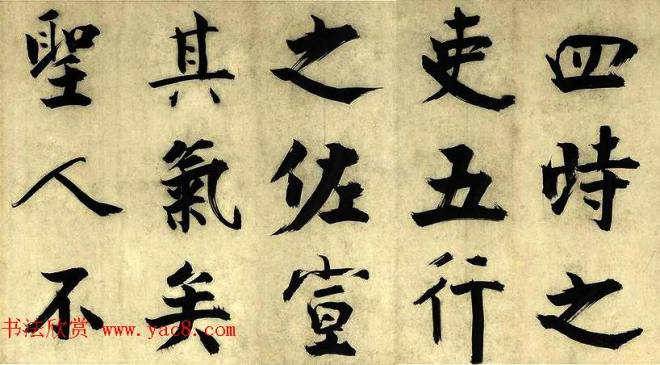 四時之
吏五行
之佐宣
其氣矣
聖人不
书法欣赏 www.yac8.com